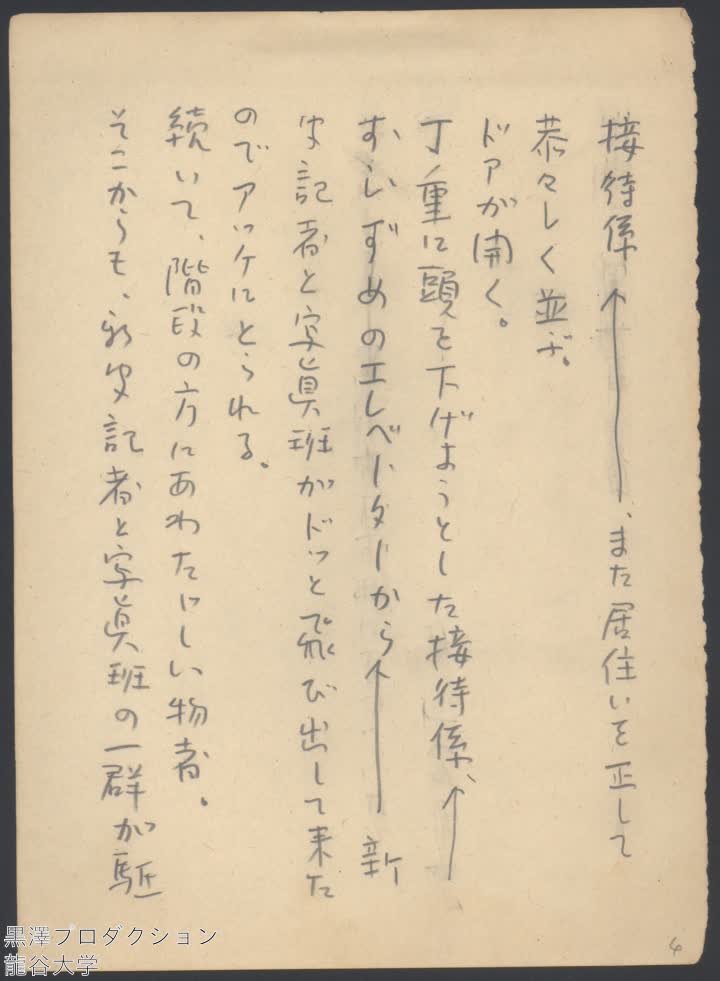 接待係、また居住いを正して
恭々しく並ぶ。
ドアが開く。
丁重に頭を下げようとした接待係、
すしずめのエレベーターから 新
聞記者と写真班がドッと飛び出して来た
のでアッケにとられる。
続いて、階段の方にあわたゞしい物音。
そこからも、新聞記者と写真班の一群が駈
4
黒澤プロダクション
龍谷大学